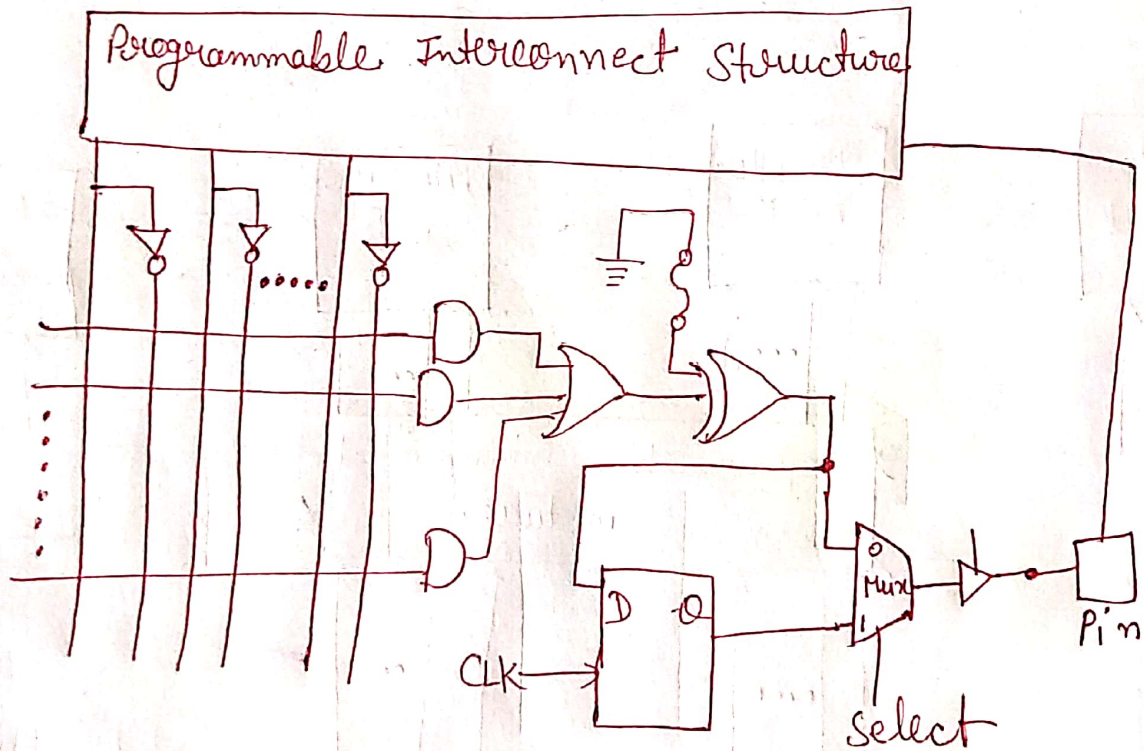 Programmable Interconnect Structure
D Q
CLK
0
Mux
1
Select
Pin